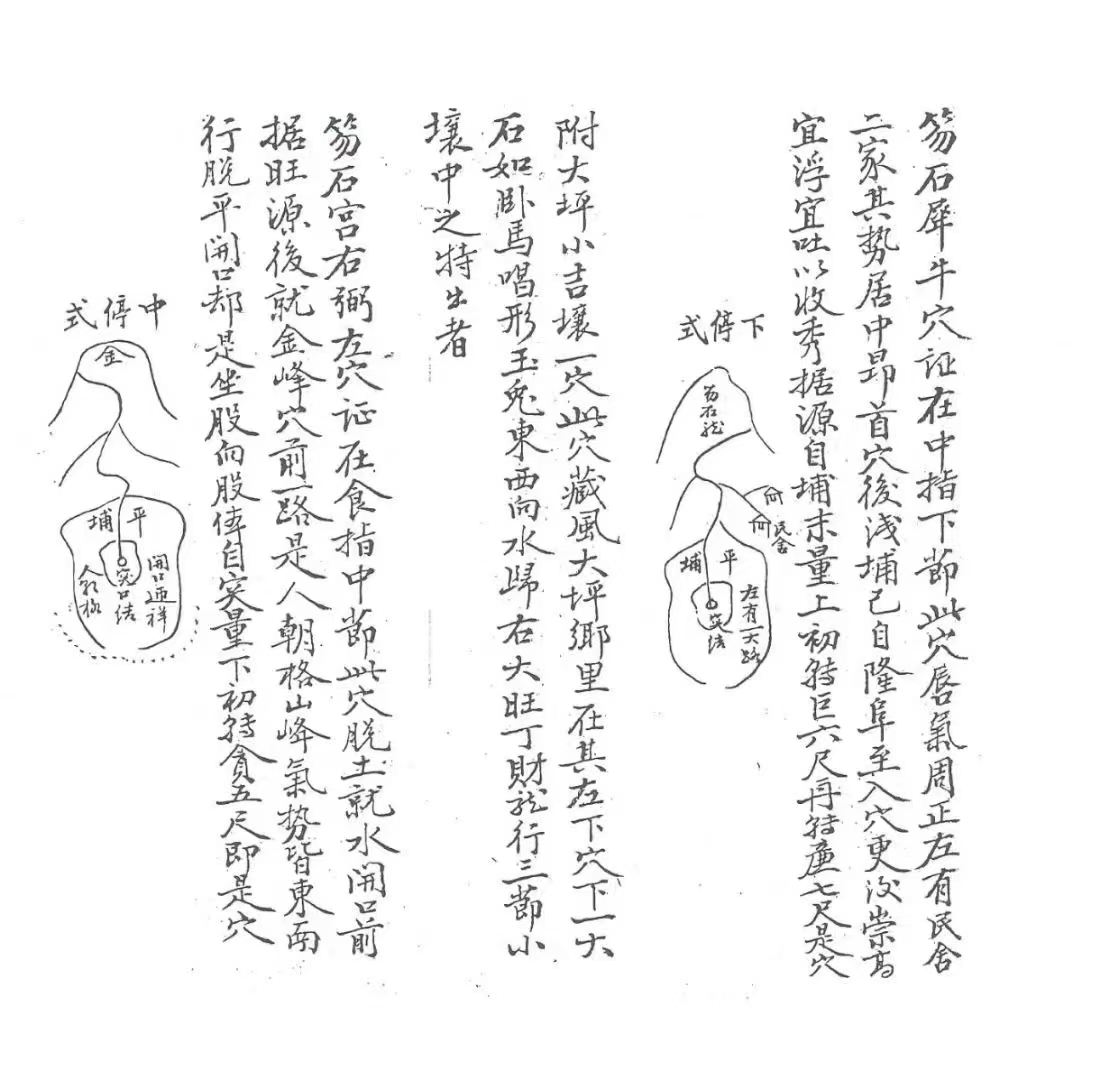 笏石犀牛穴证在中指下節此穴唇氣周正左有民舍
二家其势居中昂首穴後浅埔已自隆阜至入穴更後崇高
宜浮宜吐以收秀据源自埔末量上初转巨六尺再转廉七尺是穴
下停式
笏石龙
何
何民舍
平埔
左有一大路
突结
附大坪小吉壤一穴此穴藏風大坪鄉里在其左下穴下一大
石如卧馬唱形玉兔東西向水歸右大旺丁財龙行三節小
壤中之特出者
笏石宫右弼左穴证在食指中節此穴脱土就水開口前
据旺源後就金峰穴前一路是人朝格山峰氣势皆東南
行脱平開口却是坐股向股俥自突量下初转貪五尺即是穴
中停式
金
平埔
開口迎祥
突口结